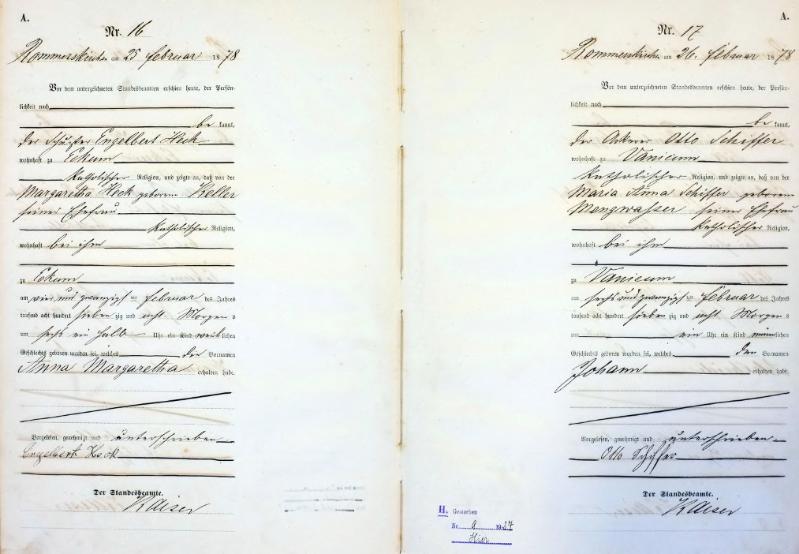 A.
Nr. 16
Rommerskirchen am 25 Februar 1878
Vor dem unterzeichneten Standesbeamten erschien heute, der Persön-
lichkeit nach
be kannt,
der Engelbert Heck
wohnhaft zu Eckum
katholischer Religion, und zeigte an, daß von der
Margaretha Heck geborenen Keller
seiner Ehefrau
katholischer Religion,
wohnhaft bei ihm
zu Eckum
am vier und zwanzigsten Februar des Jahres
tausend acht hundert sieben zig und acht Morgens
um sechs ein halb Uhr ein Kind weiblichen
Geschlechts geboren worden sei, welches den Vornamen
Anna Margaretha
erhalten habe.
Vorgelesen, genehmigt und unterschrieben
Engelbert Heck
Der Standesbeamte.
Kaiser
A.
Nr. 17
Rommerskirchen am 26. Februar 1878
Vor dem unterzeichneten Standesbeamten erschien heute, der Persön-
lichkeit nach
be kannt,
der Ackerer Otto Schiffer
wohnhaft zu Vanicum
katholischer Religion, und zeigte an, daß von der
Maria Anna Schiffer geborenen
Mengwasser seiner Ehefrau
katholischer Religion,
wohnhaft bei ihm
zu Vanicum
am sechs und zwanzigsten Februar des Jahres
tausend acht hundert sieben zig und acht Morgens
um ein Uhr ein Kind männlichen
Geschlechts geboren worden sei, welches den Vornamen
Johann
erhalten habe.
Vorgelesen, genehmigt und unterschrieben
Otto Schiffer
Der Standesbeamte.
Kaiser
H. Gestorben
Nr. 9 1927
Hier